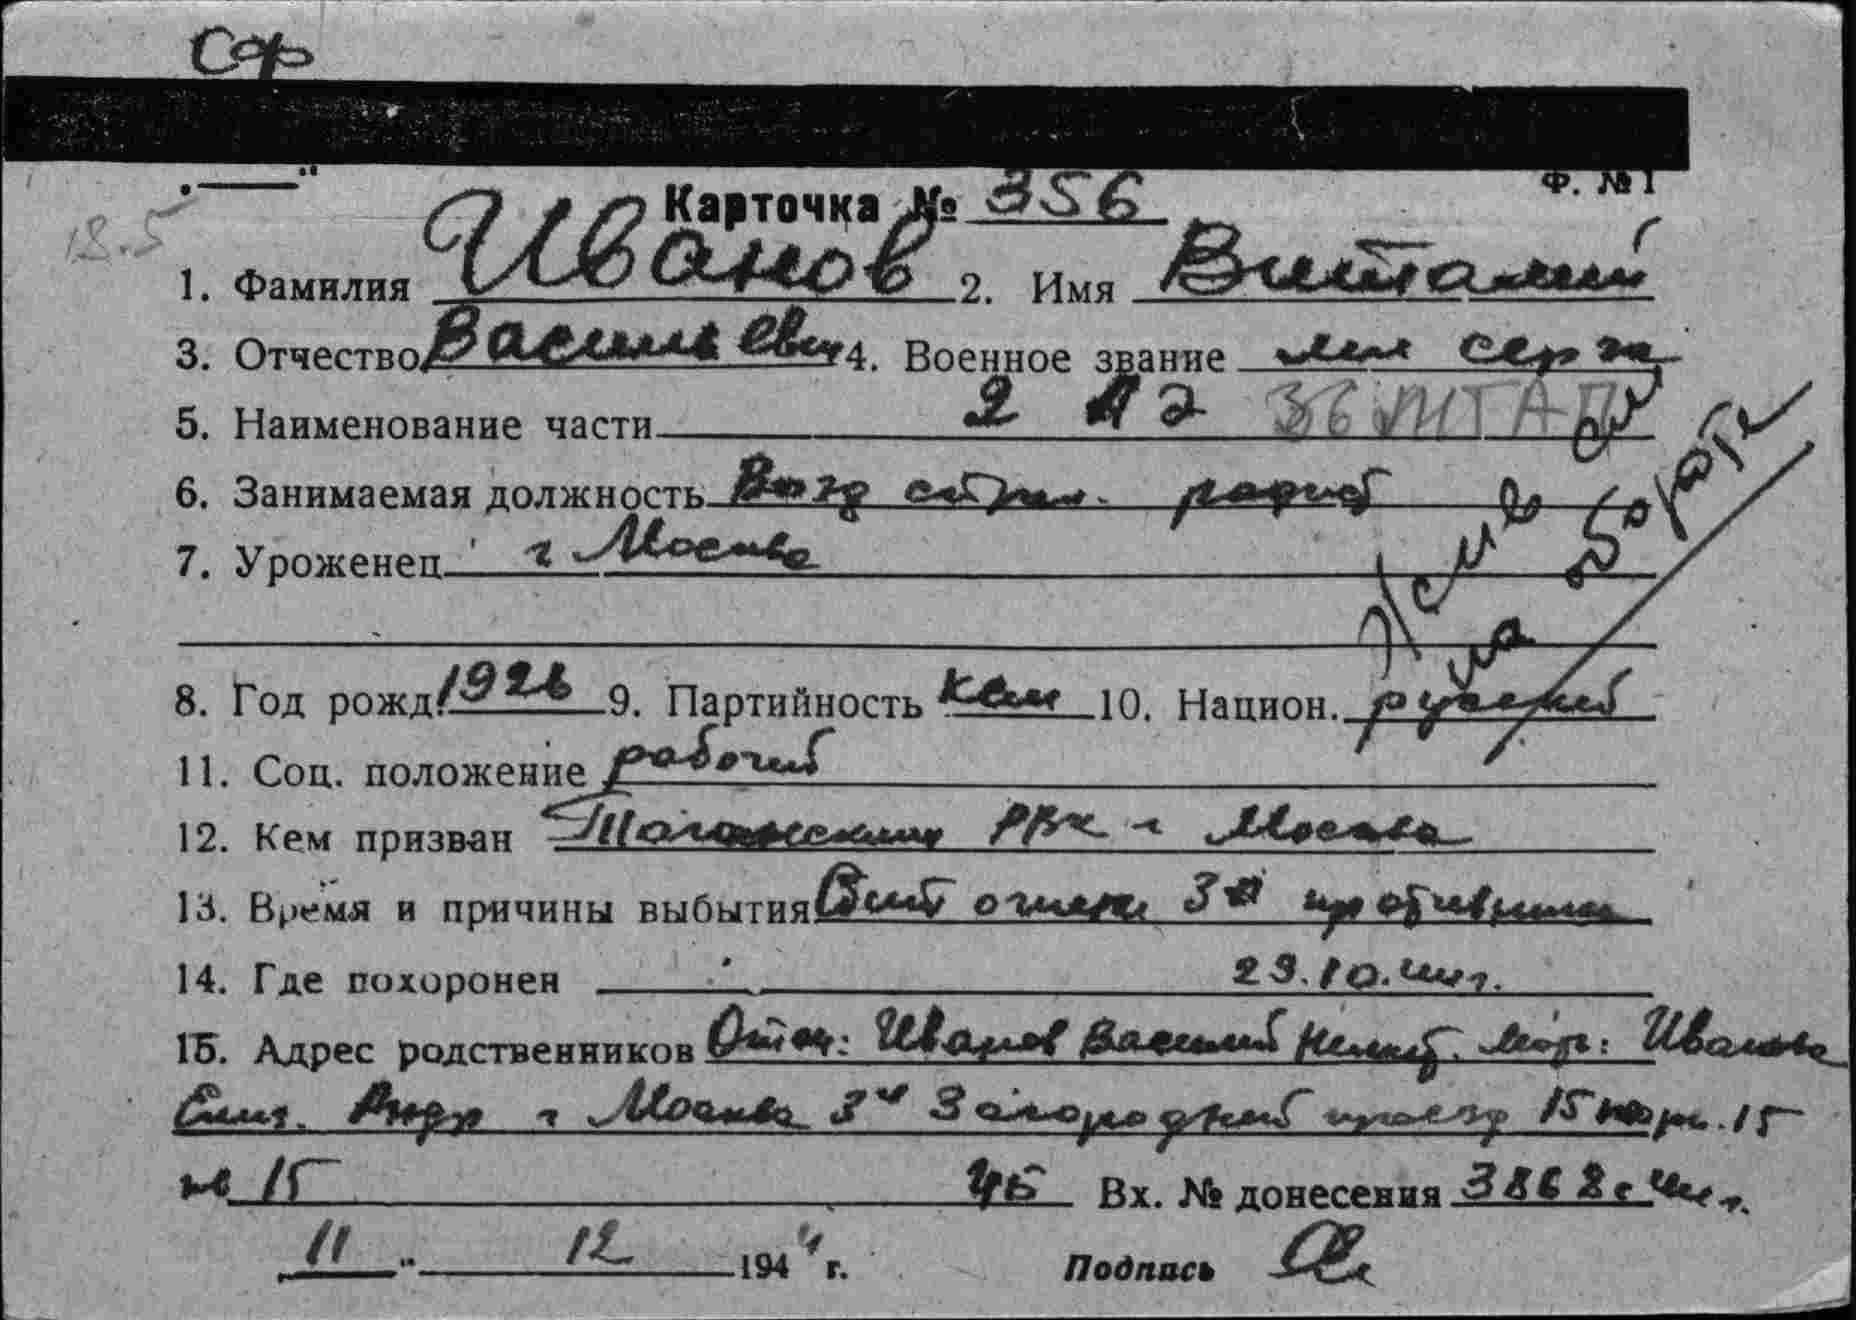 Сф
Ф. №1
Карточка № 356
18.5
1. Фамилия Иванов 2. Имя Виталий
3. Отчество Васильевич 4. Военное звание мл серж
5. Наименование части 2 АЭ 36 МТАП
6. Занимаемая должность Возд стрел. радист
7. Уроженец г Москва
Не на борту
8. Год рожд. 1926 9. Партийность 10. Национ. русский
11. Соц. положение рабочий
12. Кем призван Таганским РВК г Москва
13. Время и причины выбытия Сбит огнем ЗА противника
14. Где похоронен 29.10.44г.
15. Адрес родственников Отец: Иванов Василий Мать: Иванова
Андр г Москва 3й Загородный проезд 15 корп. 15
кв 15 Вх. № донесения 3868с 44г.
11 " 12 1944 г. Подпись